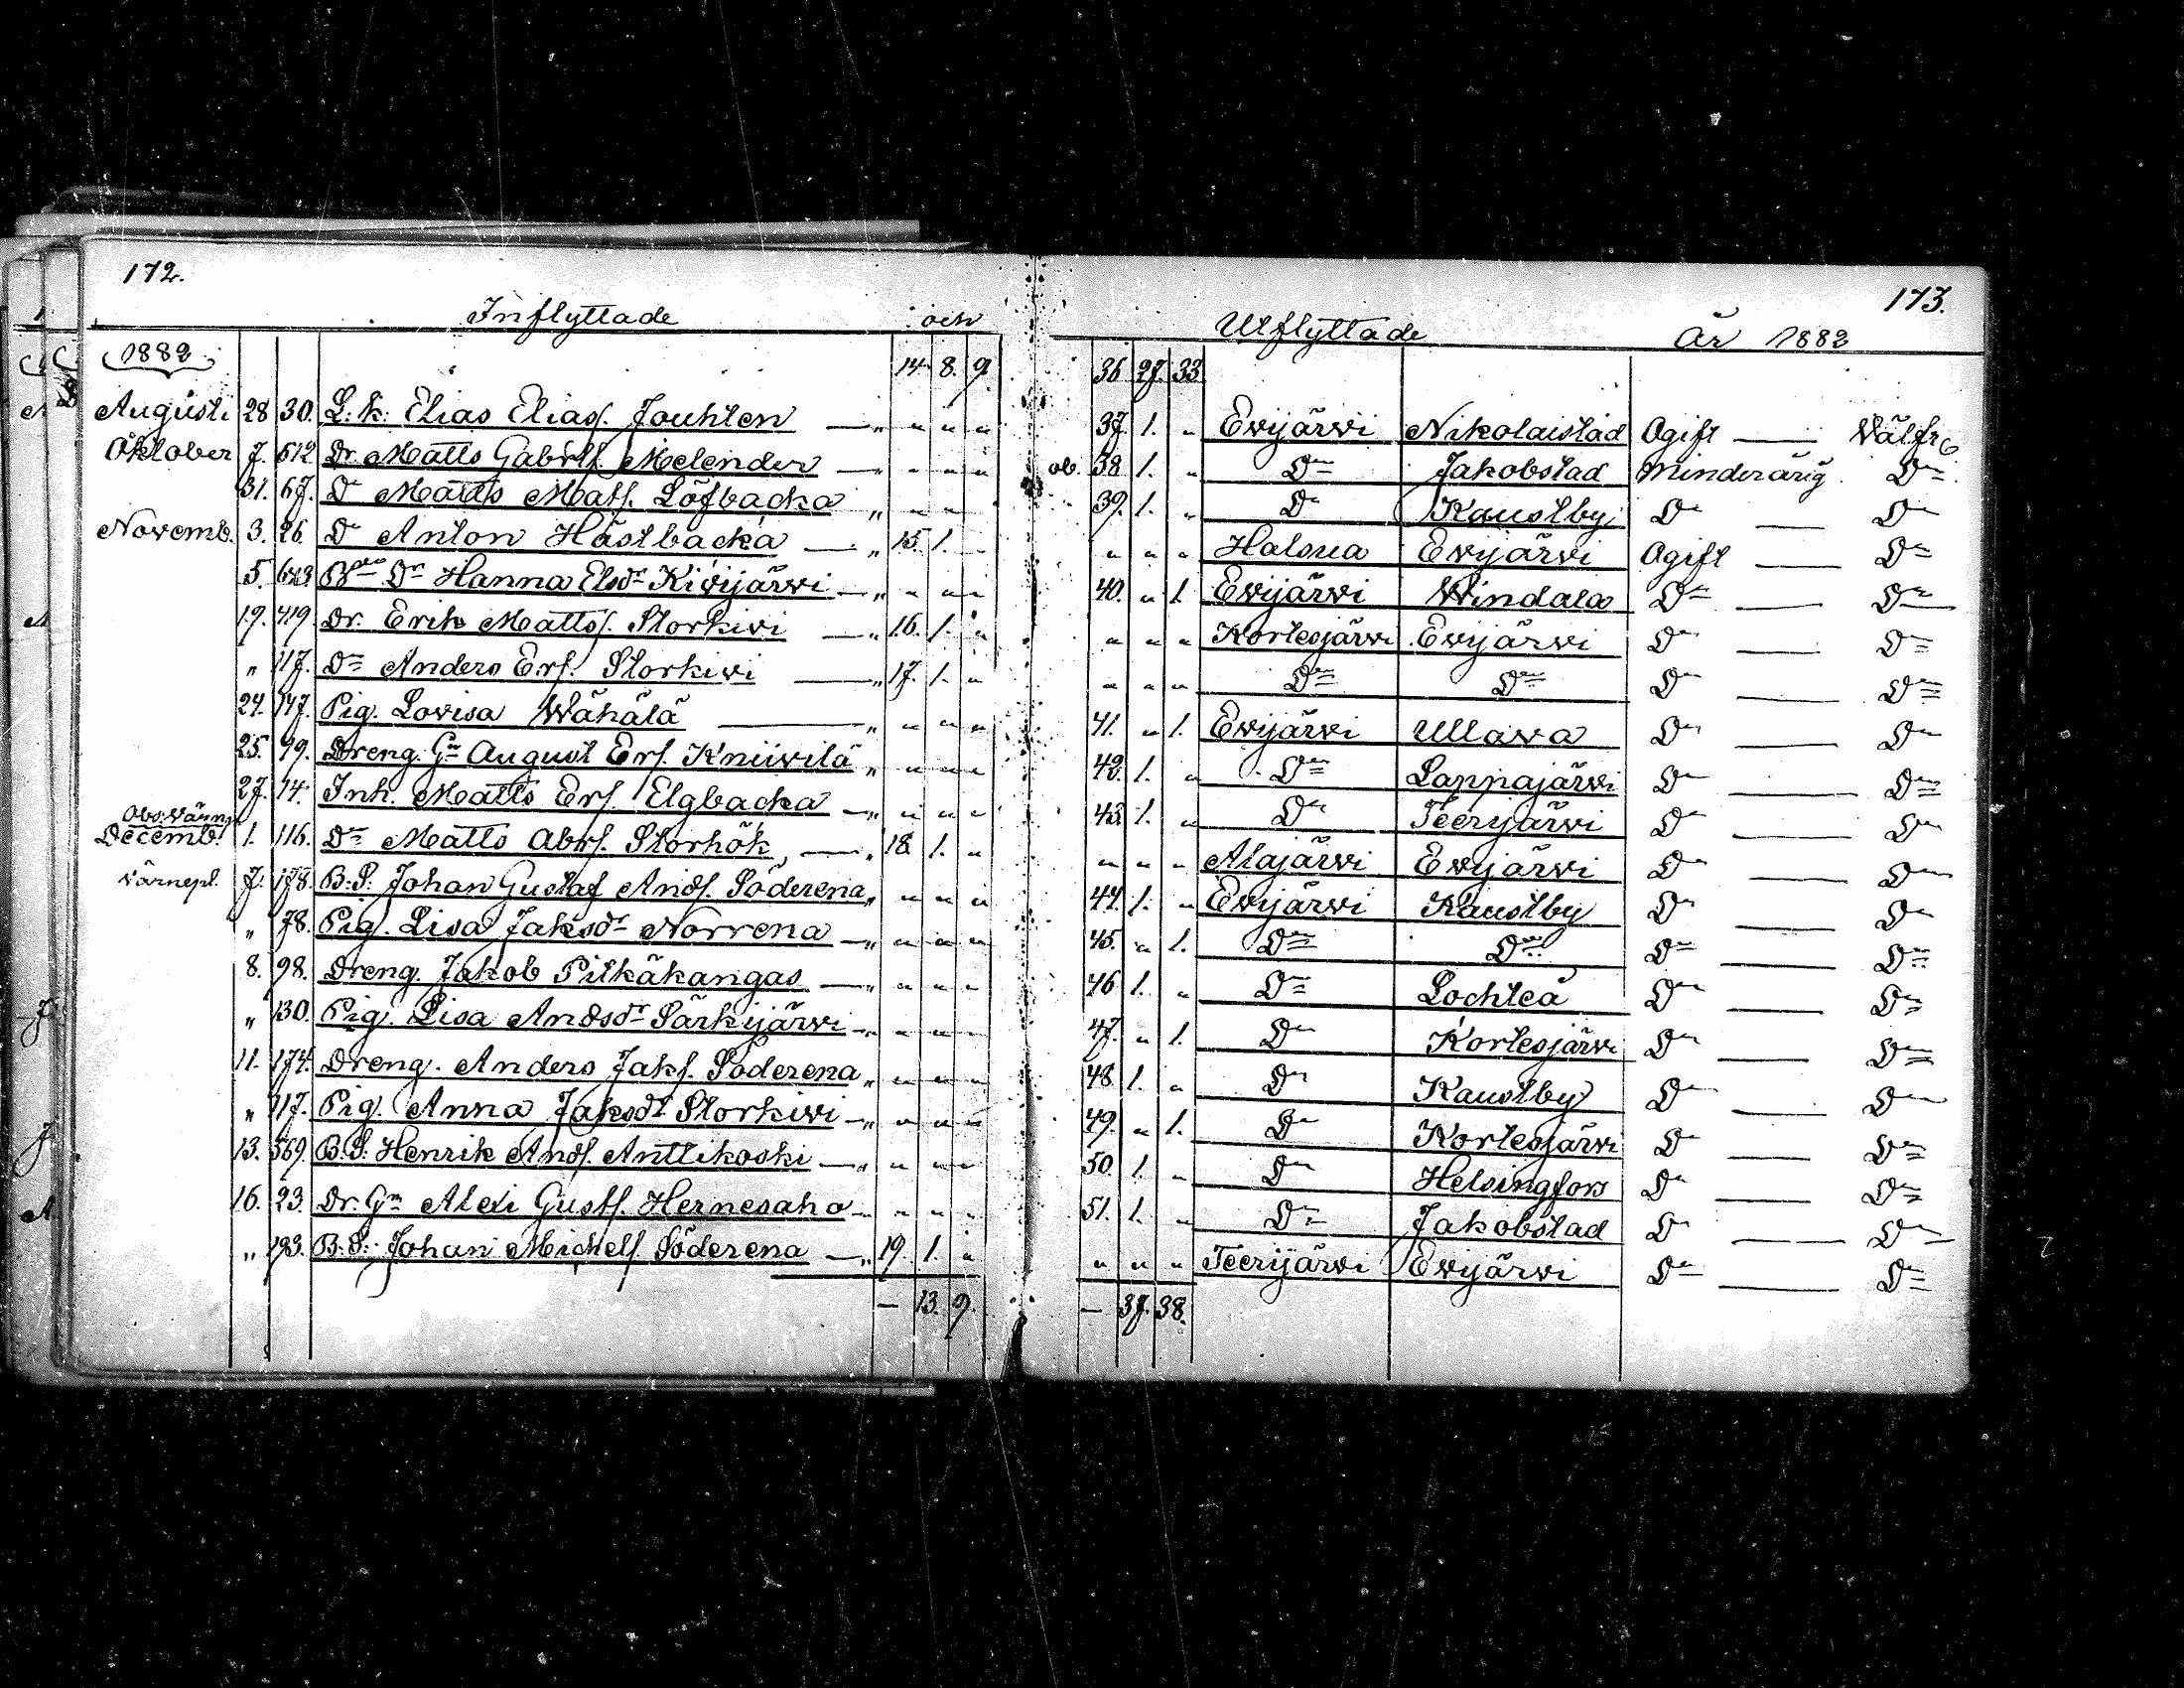 172.
173.
Inflyttade och Utflyttade År 1882
1882
14. 8. 9. 36 27. 33
Augusti 28 30. L: k: Elias Elias. Jouhten — „ „ „ „ 37. 1. „ Ewijärwi Nikolaistad Ogift — Välfr
Oktober 7. 612. Dr. Matts Gabrls. Melender — „ „ „ „ ob. 38. 1. „ Do Jakobstad Minderårig Do
31. 67. Do Matts Mats. Löfbacka „ „ „ „ 39. 1. „ Do Kaustby Do — Do
Novemb. 3. 26 Do Anton Hästbacka — „ 15. 1. „ „ „ „ Halsua Ewijärwi Ogift — Do
5. Do Hanna Elsdr Kiwijärwi — „ „ „ „ 40. „ 1. Ewijärwi Windala Do — Do
19. 419. Dr. Erik Matts. Storkiwi — „ 16. 1. „ „ „ „ Kortesjärwi Ewijärwi Do — Do
„ 117. Do Anders Ers. Storkiwi — „ 17. 1. „ „ „ „ Do Do Do — Do
24. 147. Pig. Lovisa Wähälä — „ „ „ „ 41. „ 1. Ewijärwi Ullava Do — Do
25. 99. Dreng. Gn August Ers. Kniivilä „ „ „ „ 42. 1. „ Do Lappajärwi Do — Do
27. 14. Inh. Matts Ers. Elgbacka — „ „ „ „ 43. 1. „ Do Teerijärwi Do — Do
Obs: Värnpl
Decemb. 1. 116. Do Matts Abrs. Storhök — „ 18. 1. „ „ „ „ Alajärwi Ewijärwi Do — Do
värnepl. 7. 178. B: S: Johan Gustaf Ands. Söderena „ „ „ „ 44. 1. „ Ewijärwi Kaustby Do — Do
„ 78. Pig. Lisa Jaksdr Norrena — „ „ „ „ 45. „ 1. Do Do Do — Do
8. 98. Dreng. Jakob Pitkäkangas — „ „ „ „ 46 1. „ Do Lochteå Do — Do
„ 130. Pig. Lisa Andsdr Särkijärwi — „ „ „ „ 47. „ 1. Do Kortesjärwi Do — Do
11. 174. Dreng. Anders Jaks. Söderena „ „ „ „ 48. 1. „ Do Kaustby Do — Do
„ 117. Pig. Anna Jaksdr Storkiwi — „ „ „ „ 49. „ 1. Do Kortesjärwi Do — Do
13. 569. B. S: Henrik Ands. Anttikoski — „ „ „ „ 50. 1. „ Do Helsingfors Do — Do
16. 23. Dr. Gn Alexi Gusts. Hernesaho — „ „ „ „ 51. 1. „ Do Jakobstad Do — Do
„ 193. B. S: Johan Michels. Söderena — „ 19. 1. „ „ „ „ Teerijärwi Ewijärwi Do — Do
— 13. 9. — 37. 38.